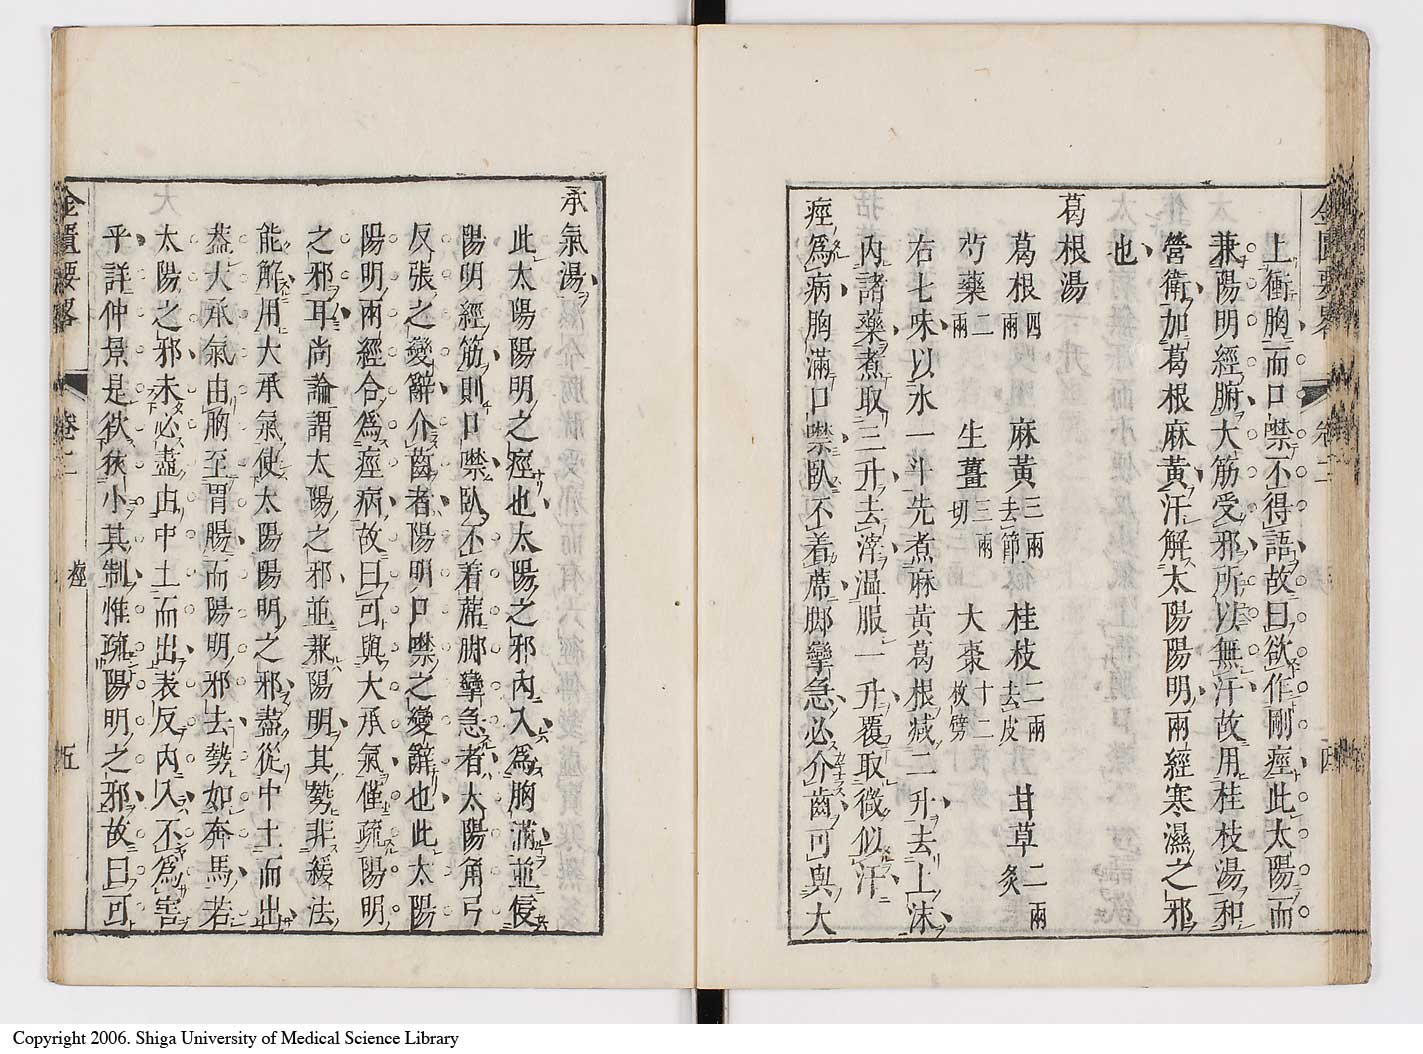 上衝胸而口噤不得語故曰欲作剛痙此太陽而
兼陽明經腑大筋受邪所以無汗故用桂枝湯和
營衛加葛根麻黃汗解太陽陽明兩經寒濕之邪
也
葛根湯
葛根四兩 麻黃三兩去節 桂枝二兩去皮 甘草二兩炙
芍藥二兩 生薑三兩切 大棗十二枚劈
右七味以水一斗先煮麻黃葛根減二升去上沫
內諸藥煮取三升去滓溫服一升覆取微似汗
痙為病胸滿口噤臥不着席脚攣急必介齒可與大
承氣湯
此太陽陽明之痙也太陽之邪內入為胸滿並侵
陽明經筋則口噤臥不着席脚攣急者太陽角弓
反張之變辭介齒者陽明口噤之變辭也此太陽
陽明兩經合為痙病故曰可與大承氣僅疏陽明
之邪耳尚論謂太陽之邪並兼陽明其勢非緩法
能解用大承氣使太陽陽明之邪盡從中土而出
葢大承氣由胸至胃腸而陽明邪去勢如奔馬若
太陽之邪未必盡由中土而出表反內入不為害
乎詳仲景是欲狹小其制惟疏陽明之邪故曰可
金匱要略 卷二 痙 五
Copyright 2006. Shiga University of Medical Science Library